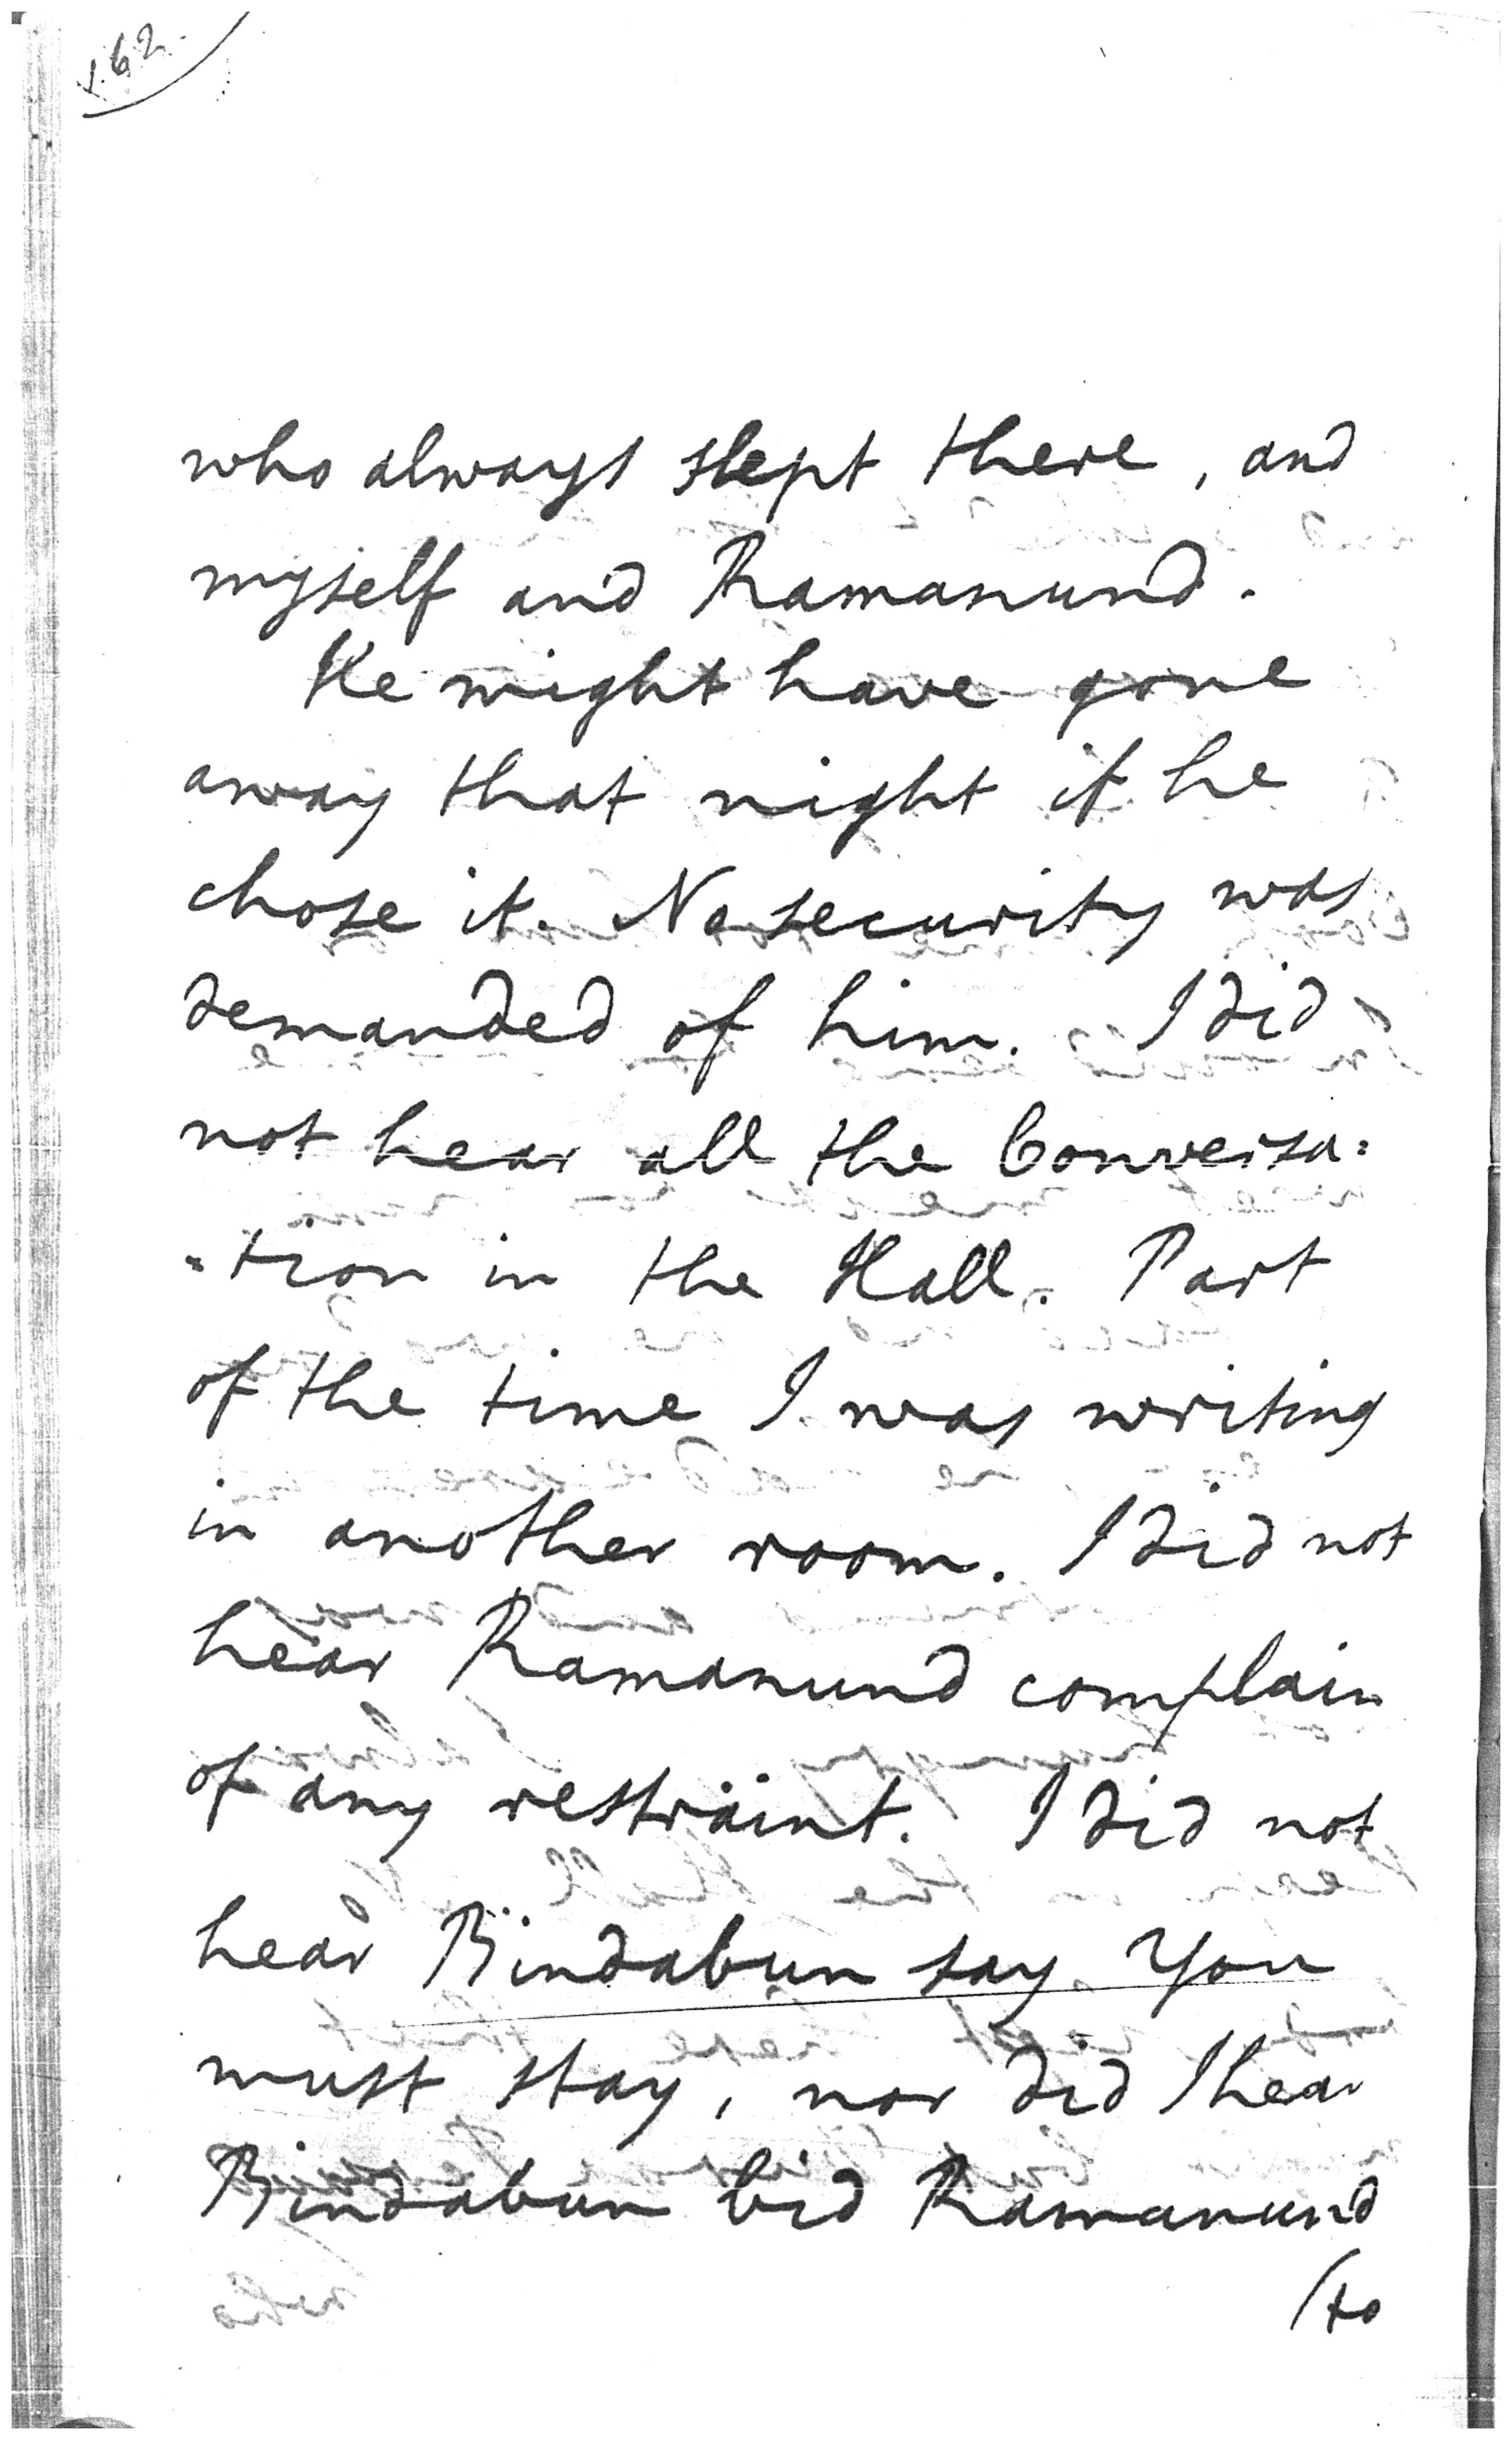 162.
who always slept there, and
myself and Ramanund.
He might have gone
away that night if he
chose it. No security was
demanded of him. I did
not hear all the Conversa:
"tion in the Hall. Part
of the time I was writing
in another room. I did not
hear Ramanund complain
of any restraint. I did not
hear Bindabun say You
must stay, nor did I hear
Bindabun bid Ramanund
(to